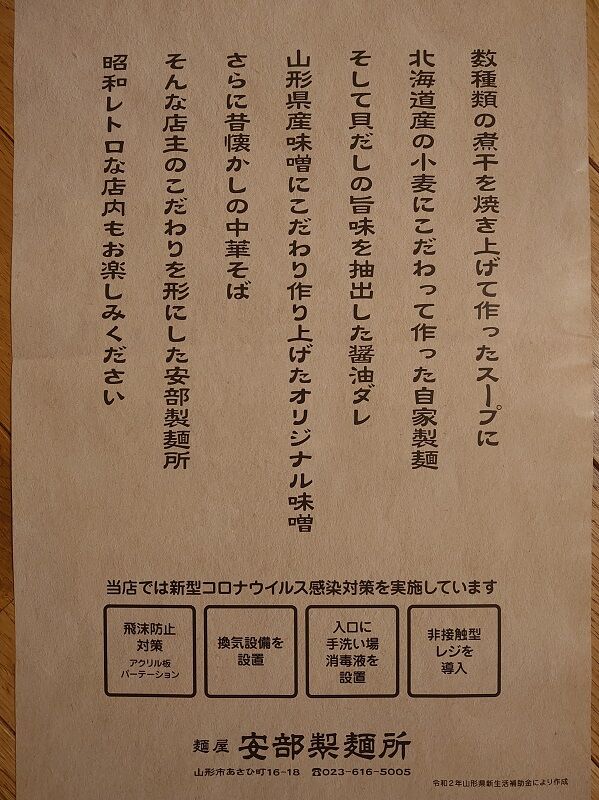 数種類の煮干を焼き上げて作ったスープに
北海道産の小麦にこだわって作った自家製麺
そして貝だしの旨味を抽出した醤油ダレ
山形県産味噌にこだわり作り上げたオリジナル味噌
さらに昔懐かしの中華そば
そんな店主のこだわりを形にした安部製麺所
昭和レトロな店内もお楽しみください
当店では新型コロナウイルス感染対策を実施しています
飛沫防止
対策
アクリル板
パーテーション
換気設備を
設置
入口に
手洗い場
消毒液を
設置
非接触型
レジを
導入
麺屋 安部製麺所
山形市あさひ町16-18 ☎023-616-5005
令和2年山形県新生活補助金により作成